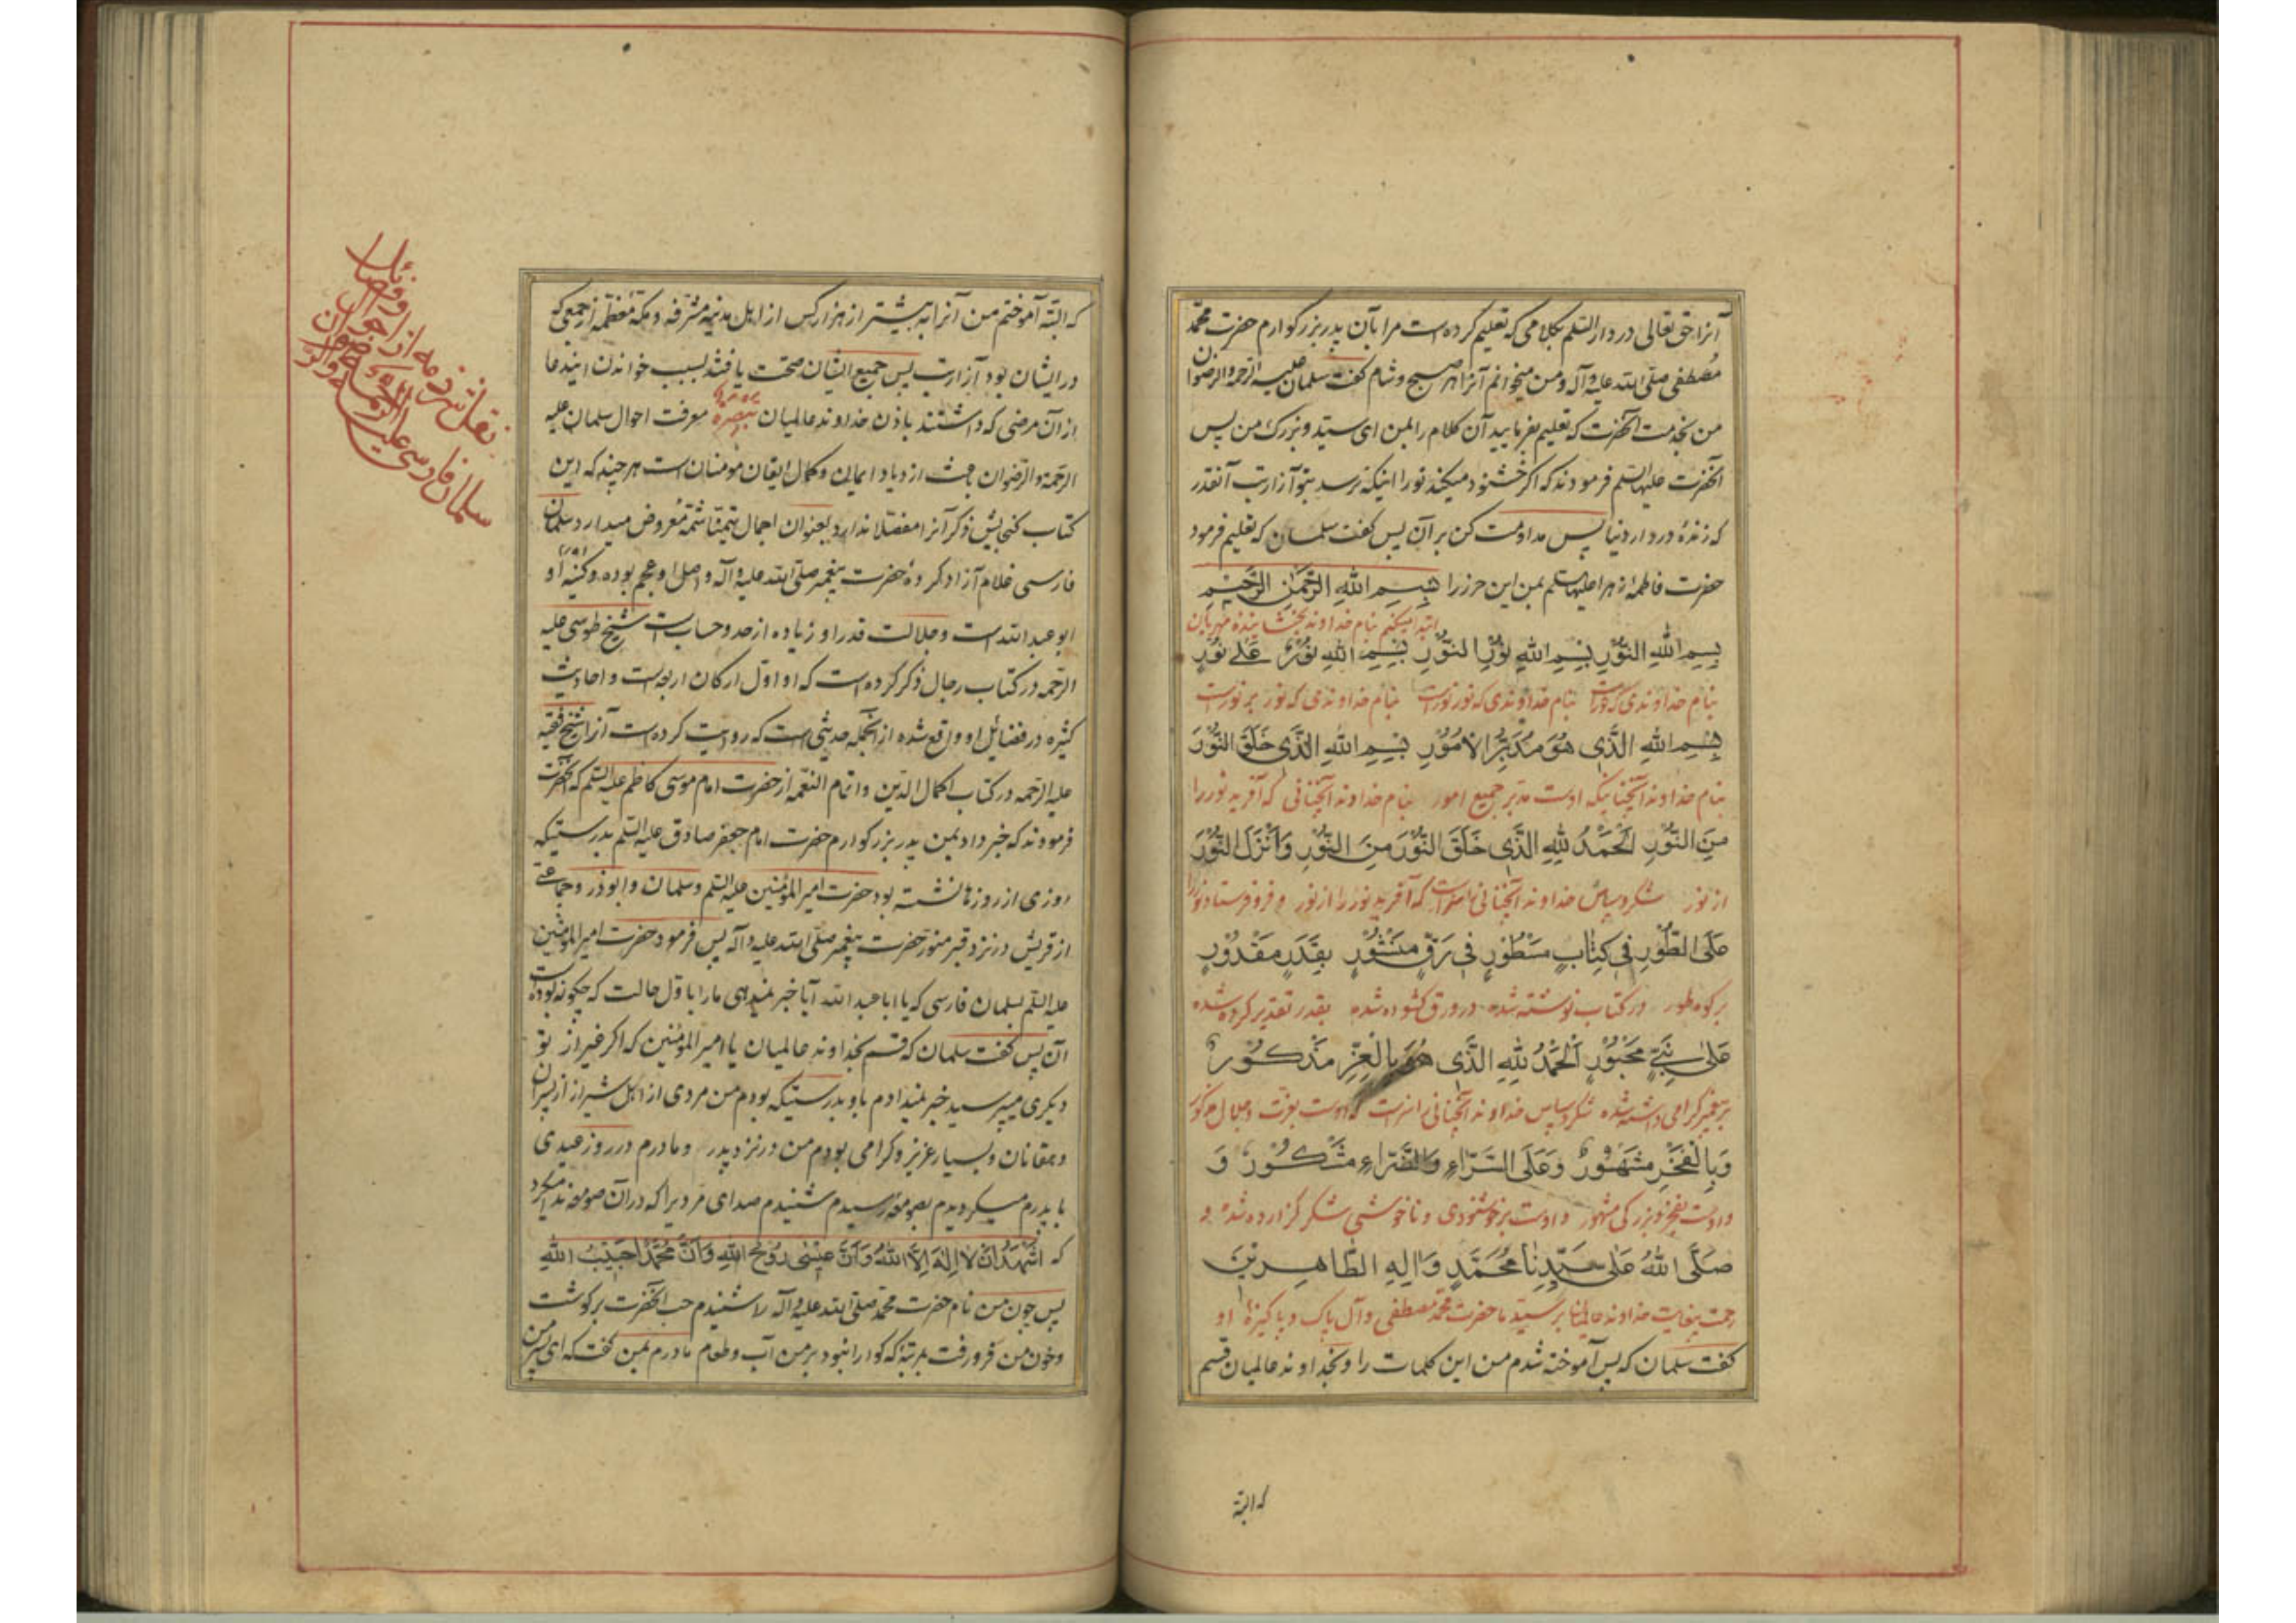 آنرا حق تعالی در دار السّلم بکلامی که تعلیم کرده است مرا بآن پدر بزرکوارم حضرت محمّد
مصطفی صلّی الله علیه وآله ومن میخوانم آنرا هر صبح وشام کفت سلمان علیه الرحمة والرضوان
من بخدمت آنحضرت که تعلیم بفرمایید آن کلام را بمن ای سیّد وبزرک من پس
آنحضرت علیها السّلم فرمودند که اکر خشنود میکند تورا اینکه نرسد بتو آزار تب آنقدر
که زندهٔ در دار دنیا پس مداومت کن بر آن پس کفت سلمان که تعلیم فرمود
حضرت فاطمهٔ زهرا علیها السّلم بمن این حرز را بِسمِ اللهِ الرَّحمنِ الرَّحیمِ
ابتدا میکنم بنام خداوند بخشاینده مهربان
بِسمِ اللهِ النُّورِ بِسمِ اللهِ نُورِ النُّورِ بِسمِ اللهِ نُورٌ عَلی نُورٍ
بنام خداوندی که نورست بنام خداوندی که نور نورست بنام خداوندی که نور بر نورست
بِسمِ اللهِ الَّذی هُوَ مُدَبِّرُ الأُمُورِ بِسمِ اللهِ الَّذی خَلَقَ النُّورَ
بنام خداوند آنچنانیکه اوست مدبّر جمیع امور بنام خداوند آنچنانی که آفرید نور را
مِنَ النُّورِ اَلحَمدُ لِلّهِ الَّذی خَلَقَ النُّورَ مِنَ النُّورِ وَاَنزَلَ النُّورَ
از نور شکر وسپاس خداوند آنچنانی راست که آفرید نور را از نور و فرو فرستاد نور را
عَلَی الطُّورِ فی کِتابٍ مَسطُورٍ فی رَقٍّ مَنشُورٍ بِقَدَرٍ مَقدُورٍ
بر کوه طور در کتاب نوشته شده در ورق کشوده شده بقدر تقدیر کرده شده
عَلی نَبِیٍّ مَحبُورٍ اَلحَمدُ لِلّهِ الَّذی هُوَ بِالعِزِّ مَذکُورٌ
بر پیغمبر کرامی داشته شده شکر وسپاس خداوند آنچنانی راست که اوست بعزت وجلال مذکور
وَبِالفَخرِ مَشهُورٌ وَعَلَی السَّرّاءِ وَالضَّرّاءِ مَشکُورٌ وَ
واوست بفخر وبزرکی مشهور واوست بر خوشنودی وناخوشی شکر کزارده شده و
صَلَّی اللهُ عَلی سَیِّدِنا مُحَمَّدٍ وَآلِهِ الطّاهِرینَ
رحمت خداوند بر سیّد ما حضرت محمّد مصطفی وآل پاک وپاکیزهٔ او
کفت سلمان که پس آموخته شدم من این کلمات را وبخداوند عالمیان قسم
که البتّه
که البتّه آموختم من آنرا به بیشتر از هزار کس از اهل مدینهٔ مشرّفه ومکّهٔ معظّمه از جمعی که
در ایشان بود آزار تب پس جمیع ایشان صحّت یافتند بسبب خواندن ایندعا
از آن مرضی که داشتند باذن خداوند عالمیان تبصره معرفت احوال سلمان علیه
الرحمة والرّضوان باعث ازدیاد ایمان وکمال ایقان مومنان است هر چند که این
کتاب کنجایش ذکر آنرا مفصّلا ندارد بعنوان اجمال تیمّنا شمّهٔ معروض میدارد سلمان
فارسی غلام آزاد کردهٔ حضرت پیغمبر صلّی الله علیه وآله واصل او عجم بوده وکنیهٔ او
ابو عبد الله است وجلالت قدر او زیاده از حد وحساب است شیخ طوسی علیه
الرحمه در کتاب رجال ذکر کرده است که او اوّل ارکان اربعه است واحادیث
کثیره در فضایل او واقع شده از آنجمله حدیثی است که روایت کرده است آنرا شیخ فقیه
علیه الرحمه در کتاب اکمال الدّین واتمام النعمه از حضرت امام موسی کاظم علیه السّلم که آنحضرت
فرمودند که خبر داد بمن پدر بزرکوارم حضرت امام جعفر صادق علیه السّلم بدرستیکه
روزی از روزها نشسته بود حضرت امیر المؤمنین علیه السّلم وسلمان وابوذر وجماعتی
از قریش در نزد قبر منوّر حضرت پیغمبر صلّی الله علیه وآله پس فرمود حضرت امیر المؤمنین
علیه السّلم بسلمان فارسی که یا ابا عبد الله آیا خبر نمیدهی مارا باوّل حالت که چکونه بوده است
آن پس کفت سلمان که قسم بخداوند عالمیان یا امیر المؤمنین که اکر غیر از تو
دیکری میپرسید خبر نمیدادم باو بدرستیکه بودم من مردی از اهل شیراز از پسران
دهقانان وبسیار عزیز وکرامی بودم من در نزد پدر ومادرم در روز عیدی
با پدرم میکردیدم بصومعه رسیدم شنیدم صدای مردیرا که در آن صومعه ندا میکرد
که اَشهَدُ اَن لا اِلهَ اِلَّا اللهُ وَاَنَّ عیسی رُوحُ اللهِ وَاَنَّ مُحَمَّداً حَبیبُ اللهِ
پس چون من نام حضرت محمّد صلّی الله علیه وآله را شنیدم حبّ آنحضرت بر کوشت
وخون من فرو رفت بمرتبهٔ که کوارا نبود بر من آب وطعام مادرم بمن کفت که ای پسر من
نقل شرذمه از احوال
وفضائل
سلمان فارسی علیه الرحمة والرضوان